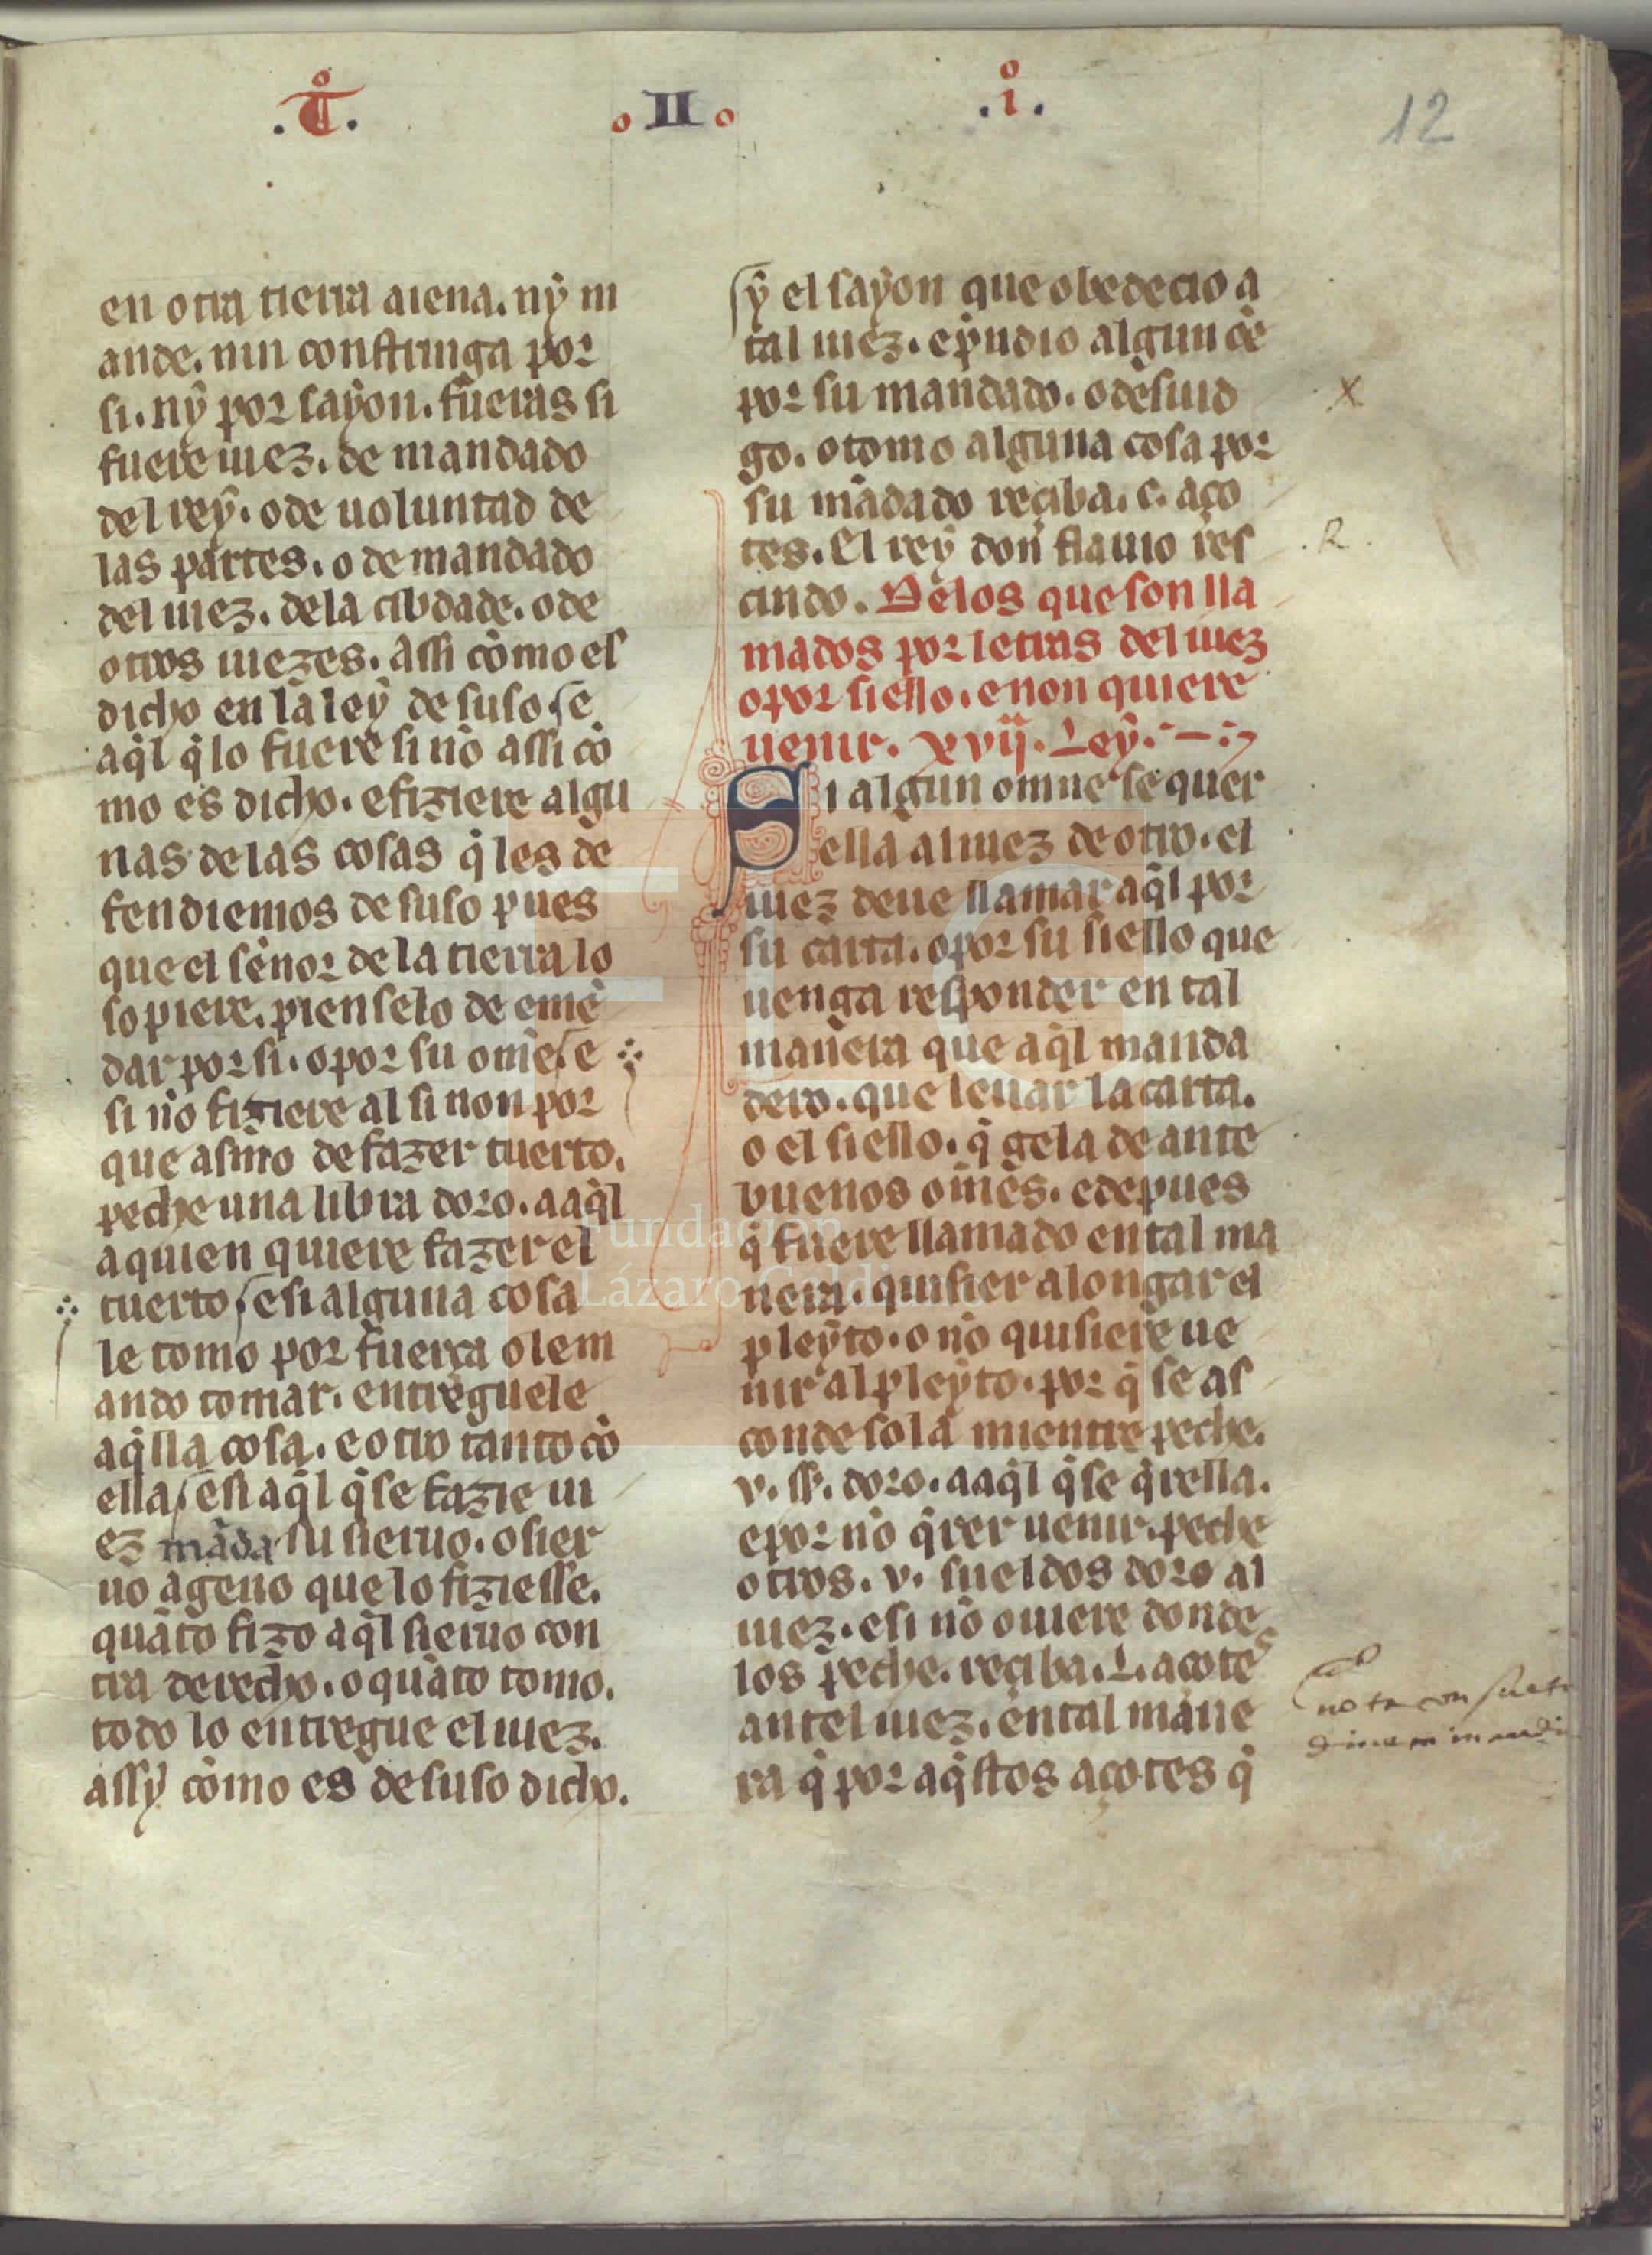 .T.º II .iº.
12
en otra tierra aiena. nẏ m
ande. nin constringa por
si. nẏ por sayon. fueras si
fuere iuez. de mandado
del reẏ. o de uoluntad de
las partes. o de mandado
del iuez. dela cibdade. o de
otros iuezes. assi cõmo es
dicho en la leẏ de suso e
aq̃l q̃ lo fuere si nõ assi cõ
mo es dicho. e fiziere algu
nas delas cosas q̃ les de
fendiemos de suso pues
que el sennor de la tierra lo
sopiere. pienselo de emẽ
dar por si. o por su omẽ e
si nõ fiziere al si non por
que asmo de fazer tuerto.
peche una libra doro. a aq̃l
a quien quiere fazer el
tuerto e si alguna cosa
le tomo por fuerça o lem
ando tomar. entreguele
aq̃lla cosa. e otro tanto cõ
ella e si aq̃l q̃ se fazie iu
ez mãda su sieruo. o sier
uo ageno que lo fiziesse.
quãto fizo aq̃l sieruo con
tra derecho. o quãto tomo.
todo lo entregue el iuez.
assy cõmo es de suso dicho.
sẏ el sayon que obedecio a
tal iuez. e p̃ndio algun õe
por su mandado. o desnud
go. o tomo alguna cosa por
su mãdado reciba. c. aço
tes. El reẏ don flauio res
cindo. Delos que son lla
mados por letras del iuez
o por siello. e non quiere
uenir. xvii. Leẏ.
Si algun omne se quer
ella al iuez de otro. el
iuez deue llamar aq̃l por
su carta. o por su siello que
uenga responder en tal
manera que aq̃l manda
dero. que leuar la carta.
o el siello. q̃ gela de ante
buenos omẽs. e depues
q̃ fuere llamado en tal ma
nera. quisier alongar el
pleẏto. o nõ quisiere ue
nir al pleẏto. por q̃ se as
conde sola mientre peche.
v. ss. doro. a aq̃l q̃ se q̃rella.
e por nõ q̃rer uenir. peche
otros. v. sueldos doro al
iuez. e si nõ ouiere donde
los peche. reciba. L. açotes
antel iuez. en tal mane
ra q̃ por aq̃stos açotes q̃
X
.R.
nota consuetu
dinem in audi
Fundación
Lázaro Galdiano